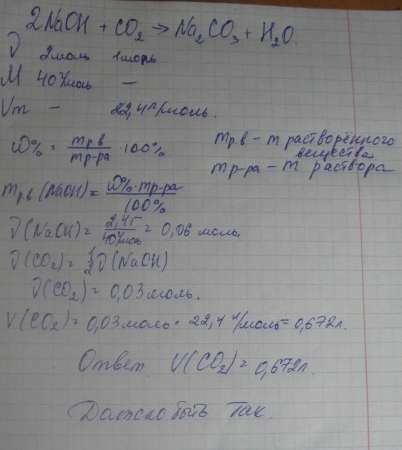 2NaOH + CO₂ → Na₂CO₃ + H₂O.
ν 2моль 1моль
M 40г/моль —
Vm — 22,4л/моль.
ω% = mр.в/mр-ра · 100% mр.в – m растворённого вещества
mр-ра – m раствора
mр.в (NaOH) = ω%·mр-ра/100%
ν(NaOH) = 2,4г/40г/моль = 0,06 моль.
ν(CO₂) = ½ν(NaOH)
ν(CO₂) = 0,03 моль.
V(CO₂) = 0,03 моль · 22,4 л/моль = 0,672л.
Ответ V(CO₂) = 0,672л.
Должно быть так.